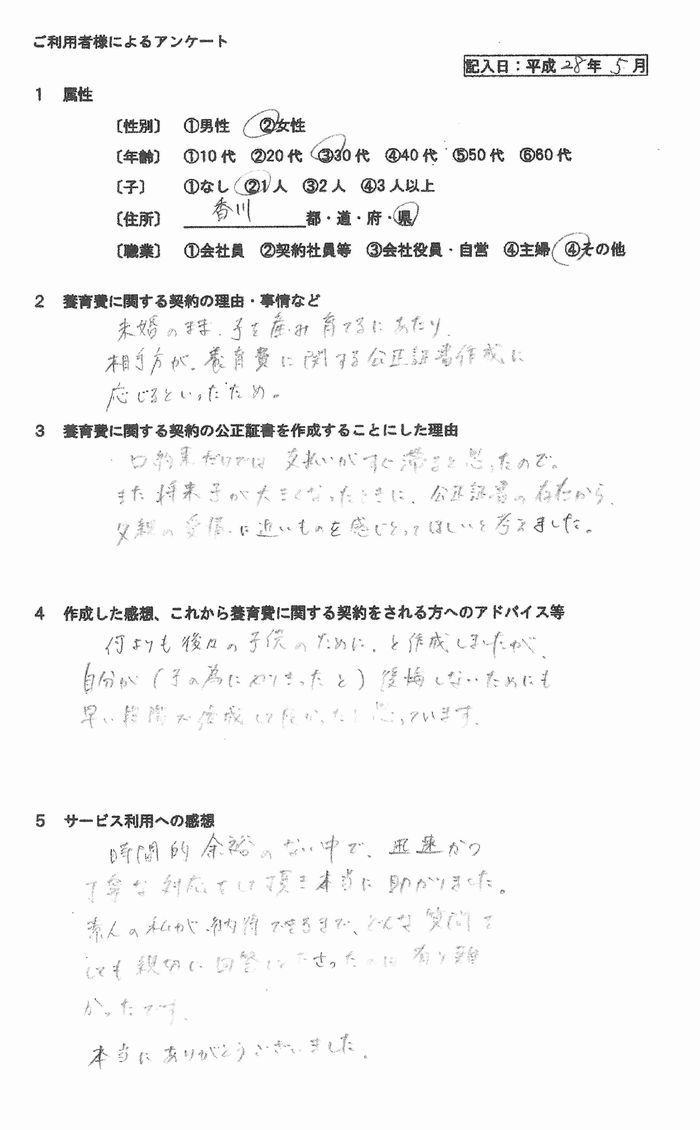 ご利用者様によるアンケート
記入日：平成 28年 5月
1 属性
〔性別〕 ①男性 ②女性
〔年齢〕 ①10代 ②20代 ③30代 ④40代 ⑤50代 ⑥60代
〔子〕 ①なし ②1人 ③2人 ④3人以上
〔住所〕 香川 都・道・府・県
〔職業〕 ①会社員 ②契約社員等 ③会社役員・自営 ④主婦 ④その他
2 養育費に関する契約の理由・事情など
未婚のまま、子を産み育てるにあたり、
相手方が、養育費に関する公正証書作成に
応じるといったため。
3 養育費に関する契約の公正証書を作成することにした理由
口約束だけでは支払いがすぐ滞ると思ったので。
また将来子が大きくなったときに、公正証書の存在から、
父親の愛情に近いものを感じとってほしいと考えました。
4 作成した感想、これから養育費に関する契約をされる方へのアドバイス等
何よりも後々の子供のために、と作成しましたが、
自分が（子の為にやりきったと）後悔しないためにも
早い段階で作成して良かったと思っています。
5 サービス利用への感想
時間的余裕のない中で、迅速かつ
丁寧な対応をして頂き本当に助かりました。
素人の私が納得できるまで、どんな質問を
しても親切に回答くださったのは有り難
かったです。
本当にありがとうございました。